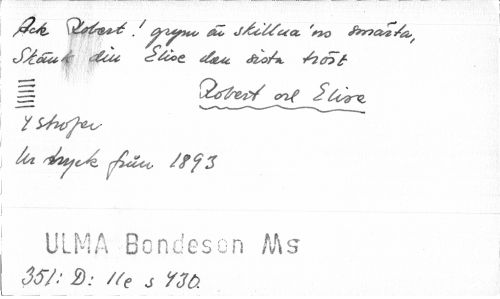 Ack Robert! grym är skillna'ns smärta,
Skänk din Elise den sista tröst
Robert och Elise
4 strofer
Ur tryck från 1893
ULMA Bondeson Ms
351: D: 11e s 430.